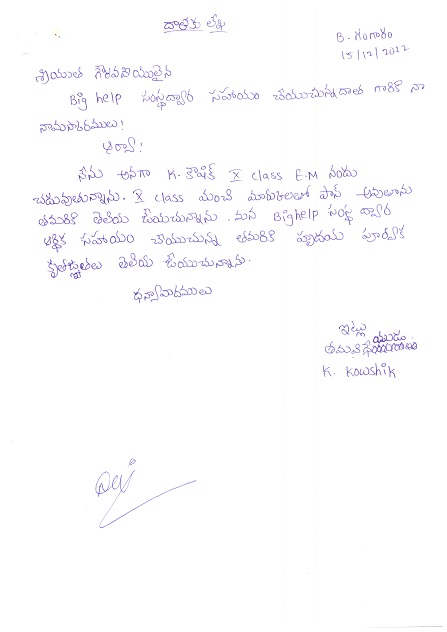 దాతకు లేఖ
B. గంగారం
15/12/2022
శ్రీయుత గౌరవనీయులైన
Big help సంస్థద్వార సహాయం చేయుచున్నదాత గారికి నా
నామస్కారములు!
ఆర్యా!
నేను అనగా K. కౌషిక్ X class E.M నందు
చదువుతున్నాను. X class మంచి మార్కులతో పాస్ అవుతాను
తమరికి తెలియ జేయచున్నాను. మన Bighelp సంస్థ ద్వార
ఆర్థిక సహాయం చేయుచున్న తమరికి హృదయ పూర్వక
కృతజ్ఞతలు తెలియ జేయుచున్నాను.
ధన్యావాదములు
ఇట్లు
తమ
K. Kowshik